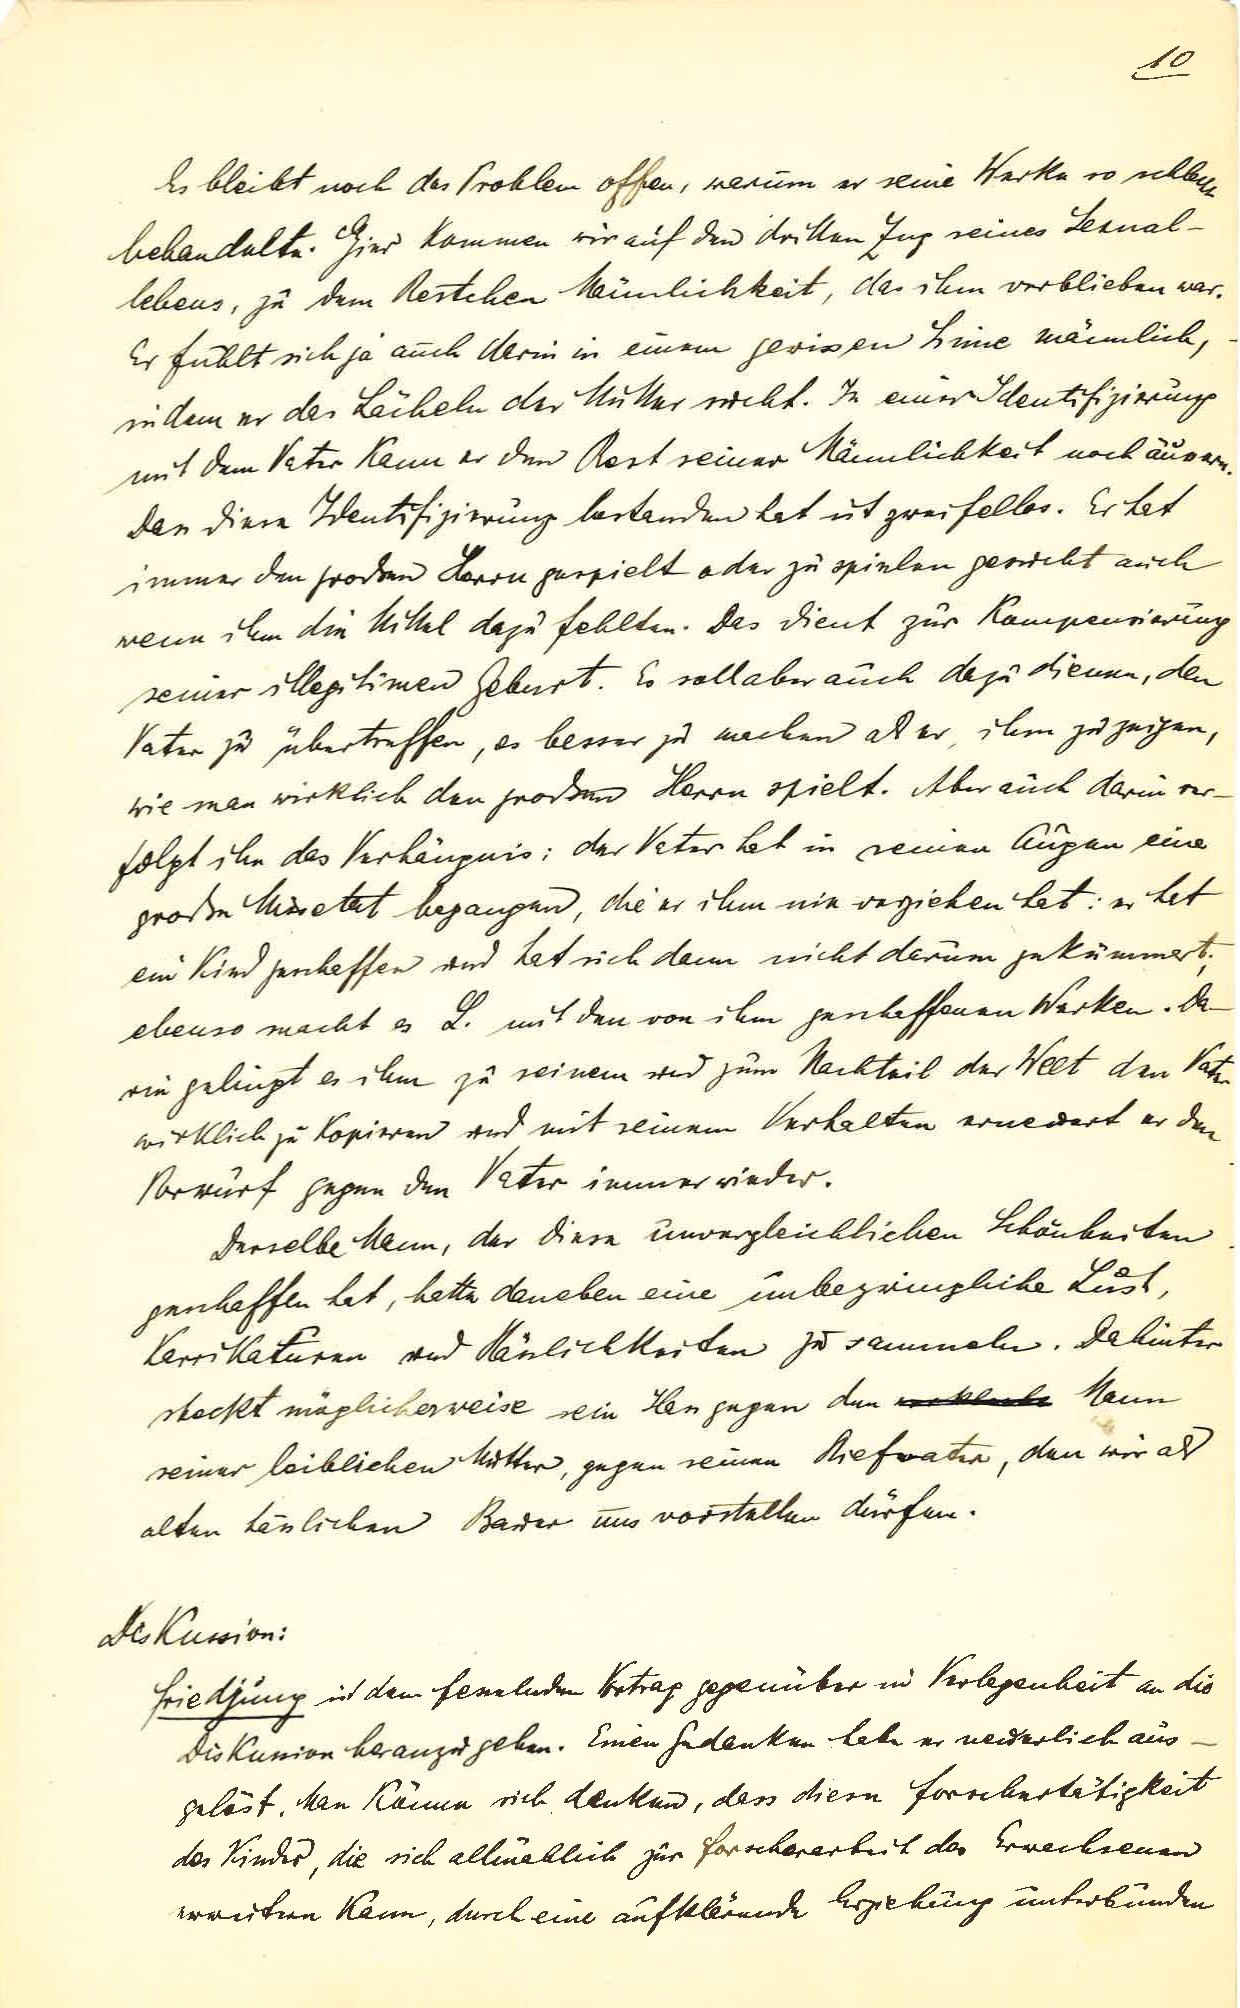 10
Es bleibt noch das Problem offen, warum er seine Werke so schlecht
behandelte. Hier kommen wir auf den dritten Zug seines Sexual-
lebens, zu dem Restchen Männlichkeit, das ihm verblieben war.
Er fühlt sich ja auch darin in einem gewissen Sinne männlich,
indem er das Lächeln der Mutter sucht. In einer Identifizierung
mit dem Vater kann er den Rest seiner Männlichkeit noch äussern.
Dass diese Identifizierung bestanden hat ist zweifellos. Er hat
immer den grossen Herrn gespielt oder zu spielen gesucht auch
wenn ihm die Mittel dazu fehlten. Das dient zur Kompensierung
seiner illegitimen Geburt. Es soll aber auch dazu dienen, den
Vater zu übertreffen, es besser zu machen als er, ihm zu zeigen,
wie man wirklich den grossen Herrn spielt. Aber auch darin ver-
folgt ihn das Verhängnis: der Vater hat in seinen Augen eine
grosse Missetat begangen, die er ihm nie verziehen hat: er hat
ein Kind geschaffen und hat sich dann nicht darum gekümmert;
ebenso macht es L. mit den von ihm geschaffenen Werken. Da-
rin gelingt es ihm zu seinem und zum Nachteil der Welt den Vater
wirklich zu kopieren und mit seinem Verhalten erneuert er den
Vorwurf gegen den Vater immer wieder.
Derselbe Mann, der diese unvergleichlichen Schönheiten
geschaffen hat, hatte daneben eine unbezwingliche Lust,
Karrikaturen und Hässlichkeiten zu sammeln. Dahinter
steckt möglicherweise sein Hass gegen den Mann
seiner leiblichen Mutter, gegen seinen Stiefvater, den wir als
alten hässlichen Bauer uns vorstellen dürfen.
Diskussion:
Friedjung ist dem fesselnden Vortrag gegenüber in Verlegenheit an die
Diskussion heranzugehen. Einen Gedanken habe er neuerlich aus-
gelöst. Man könne sich denken, dass diese Forschertätigkeit
des Kindes, die sich allmählich zur Forscherarbeit des Erwachsenen
erweitern kann, durch eine aufklärende Erziehung unterbunden